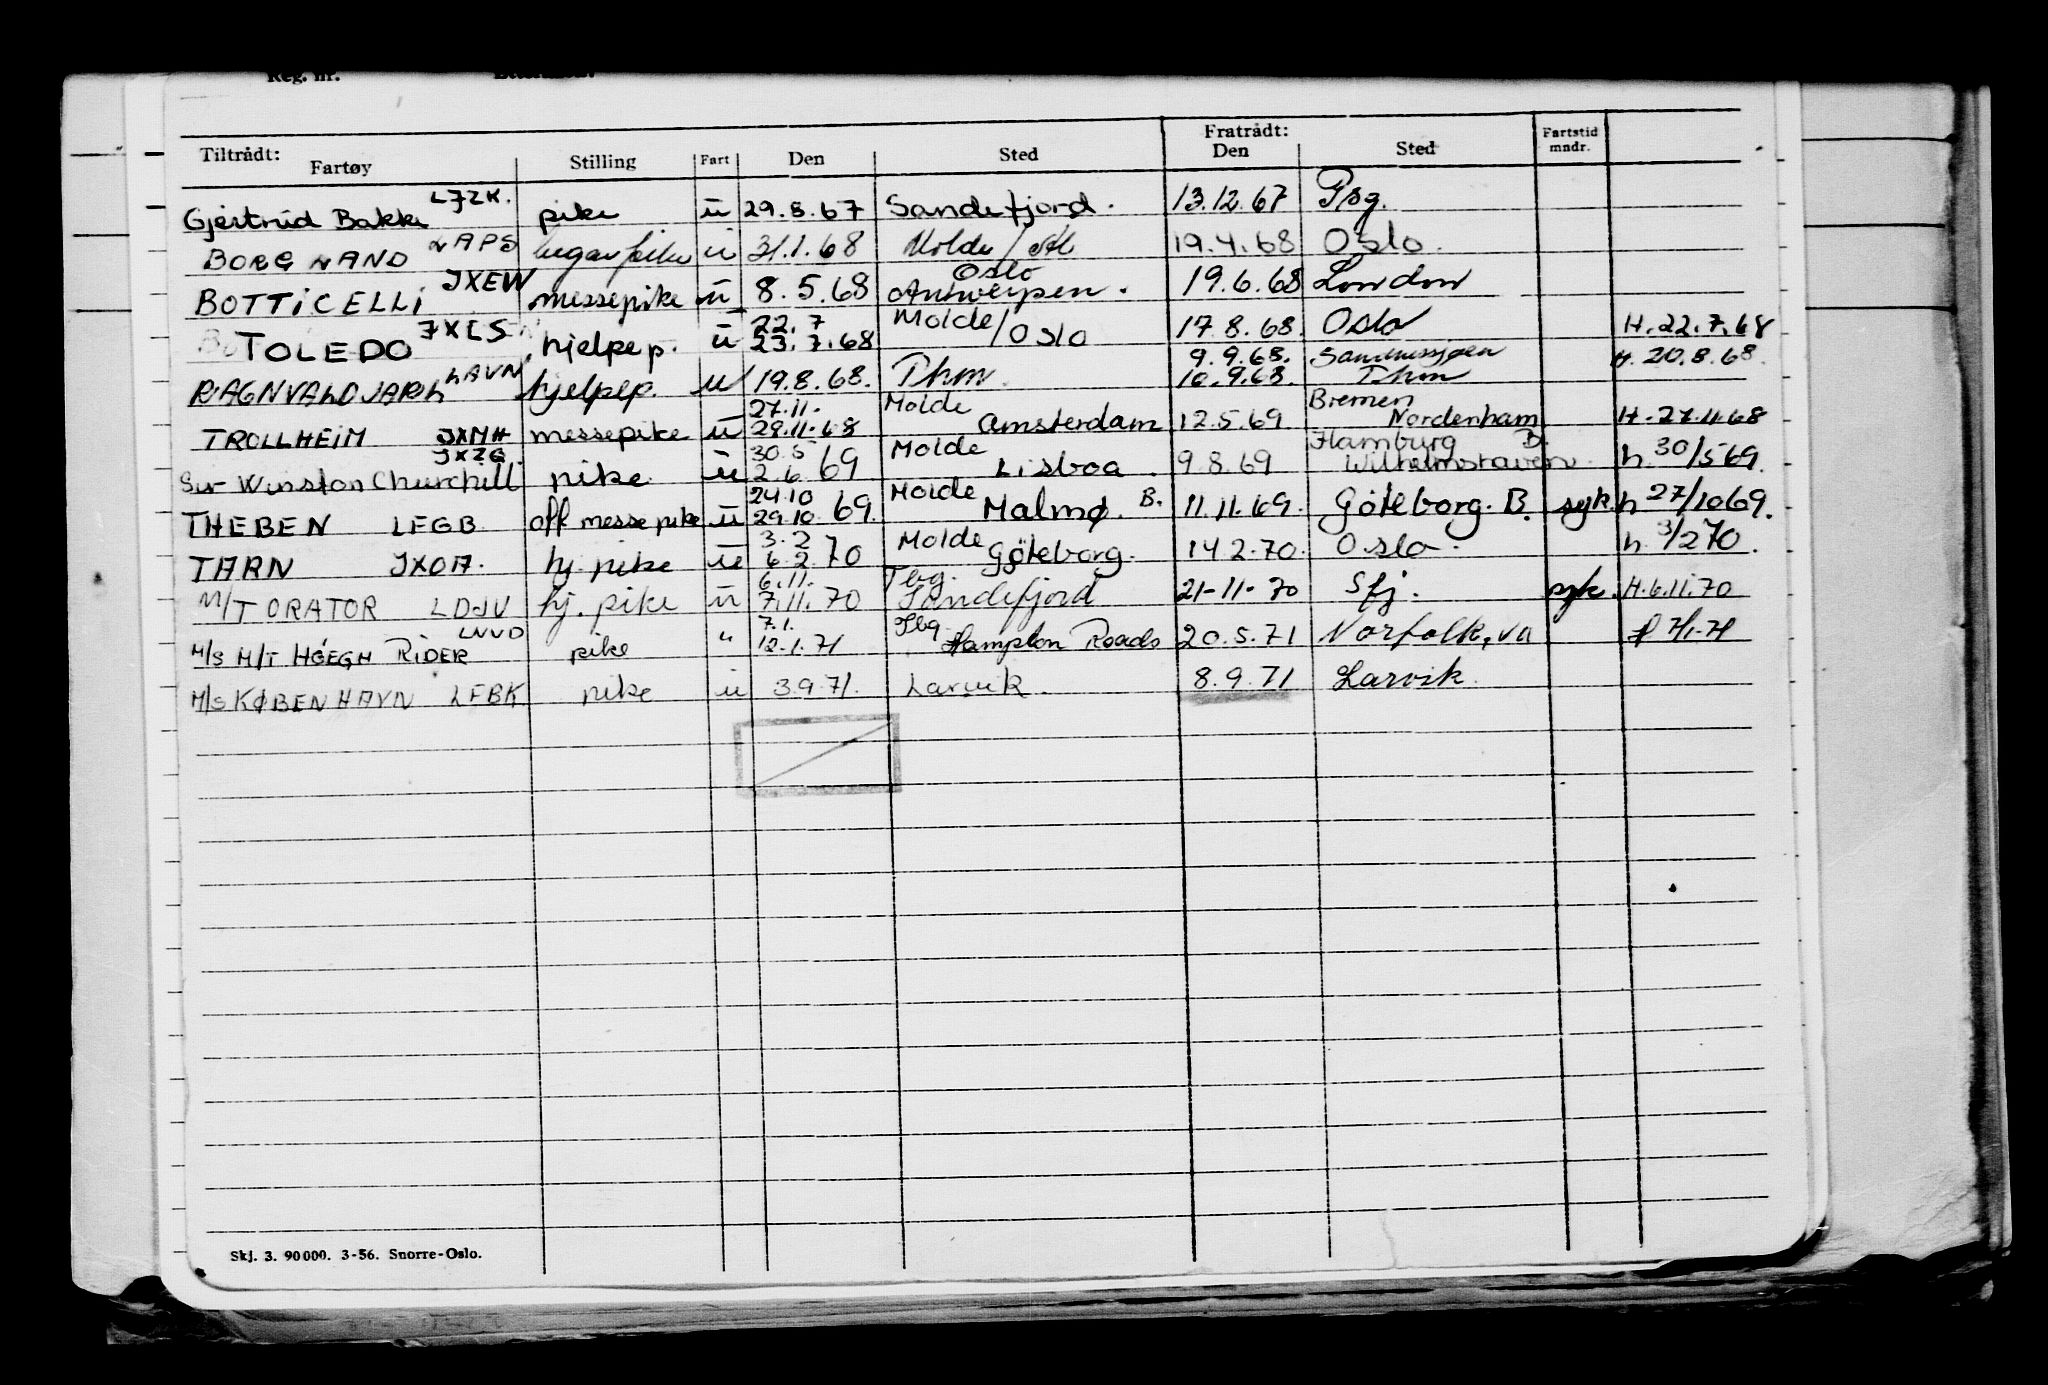 Reg. nr.
Tiltrådt: Fratrådt:
Fartøy Stilling Fart Den Sted Den Sted Fartstid mndr.
Gjertrud Bakke LJZK. pike u 29.8.67 Sandefjord. 13.12.67 Pbg.
BORGLAND LAPS lugarpike u 31.1.68 Molde / Oslo 19.4.68 Oslo.
BOTTICELLI JXEW messepike u 8.5.68 Antwerpen. 19.6.68 London
TOLEDO JXLS hjelpep. u 22.7 23.7.68 Molde / Oslo 17.8.68. Oslo H.22.7.68
RAGNVALD JARL LAVN hjelpep. u 19.8.68. Thm. 9.9.68. 10.9.68. Sandnessjøen Thm H.20.8.68.
TROLLHEIM JXMH messepike u 27.11. 28.11.68 Molde Amsterdam 12.5.69 Bremen Nordenham H.27.11.68
Sir Winston Churchill JXZG pike u 30.5 2.6.69 Molde Lisboa. 9.8.69 Hamburg B. Wilhelmshaven. h.30/5 69.
THEBEN LEGB off messepike u 24.10 29.10.69. Molde Malmø. B. 11.11.69. Göteborg. B. syk. h 27/10 69.
TARN JXOA. hj. pike u 3.2 6.2.70 Molde Göteborg. 14.2.70. Oslo. h. 3/2 70.
M/T ORATOR LDJV hj. pike u 6.11. 7.11.70 Tbg. Sandefjord 21-11-70 Sfj. syk. H.6.11.70
M/S M/T HÖEGH RIDER LNVD pike " 7.1. 12.1.71 Tbg. Hampton Roads 20.5.71 Norfolk, VA H 7/1-71
M/S KØBENHAVN LFBK pike u 3.9.71. Larvik. 8.9.71 Larvik.
Skj. 3. 90000. 3-56. Snorre-Oslo.